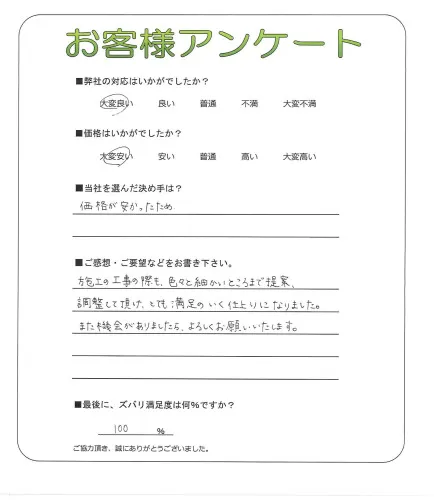 お客様アンケート
■弊社の対応はいかがでしたか?
大変良い 良い 普通 不満 大変不満
■価格はいかがでしたか?
大変安い 安い 普通 高い 大変高い
■当社を選んだ決め手は?
価格が安かったため
■ご感想・ご要望などをお書き下さい。
施工の工事の際も、色々と細かいところまで提案、
調整して頂け、とても満足のいく仕上りになりました。
また機会がありましたら、よろしくお願いいたします。
■最後に、ズバリ満足度は何%ですか?
100 %
ご協力頂き、誠にありがとうございました。